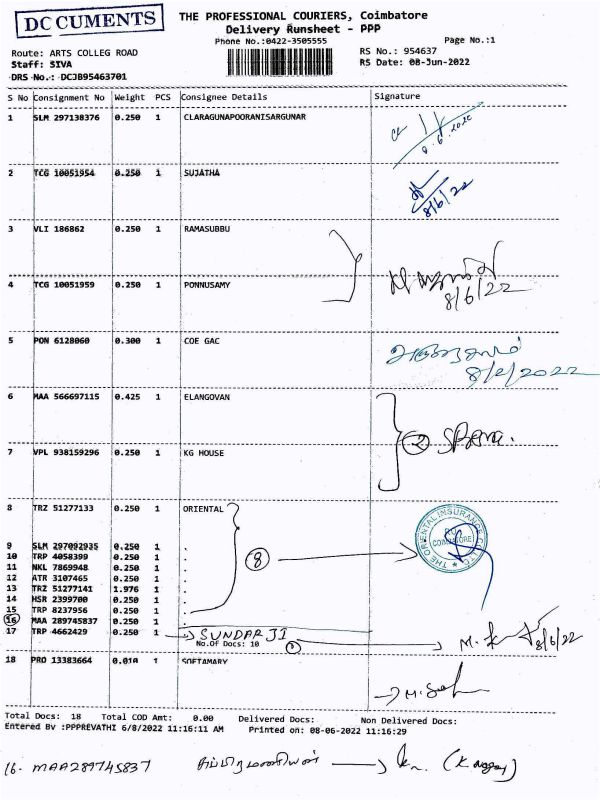 DC CUMENTS
THE PROFESSIONAL COURIERS, Coimbatore
Delivery Runsheet - PPP
Phone No.:0422-3505555 Page No.:1
Route: ARTS COLLEG ROAD RS No.: 954637
Staff: SIVA RS Date: 08-Jun-2022
DRS No.: DCJB95463701
S No Consignment No Weight PCS Consignee Details Signature
1 SLM 297138376 0.250 1 CLARAGUNAPOORANISARGUNAR
8.6.2022
2 TCG 10051954 0.250 1 SUJATHA
8/6/22
3 VLI 186862 0.250 1 RAMASUBBU
4 TCG 10051959 0.250 1 PONNUSAMY
8/6/22
5 PON 6128060 0.300 1 COE GAC
8/6/2022
6 MAA 566697115 0.425 1 ELANGOVAN
2
7 VPL 938159296 0.250 1 KG HOUSE
8 TRZ 51277133 0.250 1 ORIENTAL
THE ORIENTAL INSURANCE CO. LTD.
COIMBATORE
9 SLM 297092935 0.250 1 .
10 TRP 4058399 0.250 1 . 8
11 NKL 7869948 0.250 1 .
12 ATR 3107465 0.250 1 .
13 TRZ 51277141 1.976 1 .
14 HSR 2399700 0.250 1 .
15 TRP 8237956 0.250 1 .
16 MAA 289745837 0.250 1 .
17 TRP 4662429 0.250 1 SUNDAR JI 8/6/22
No.Of Docs: 10
18 PRO 13383664 0.010 1 SOFTAMARY
Total Docs: 18 Total COD Amt: 0.00 Delivered Docs: Non Delivered Docs:
Entered By :PPPREVATHI 6/8/2022 11:16:11 AM Printed on: 08-06-2022 11:16:29
16. MAA289745837 சுப்பிரமணியன்